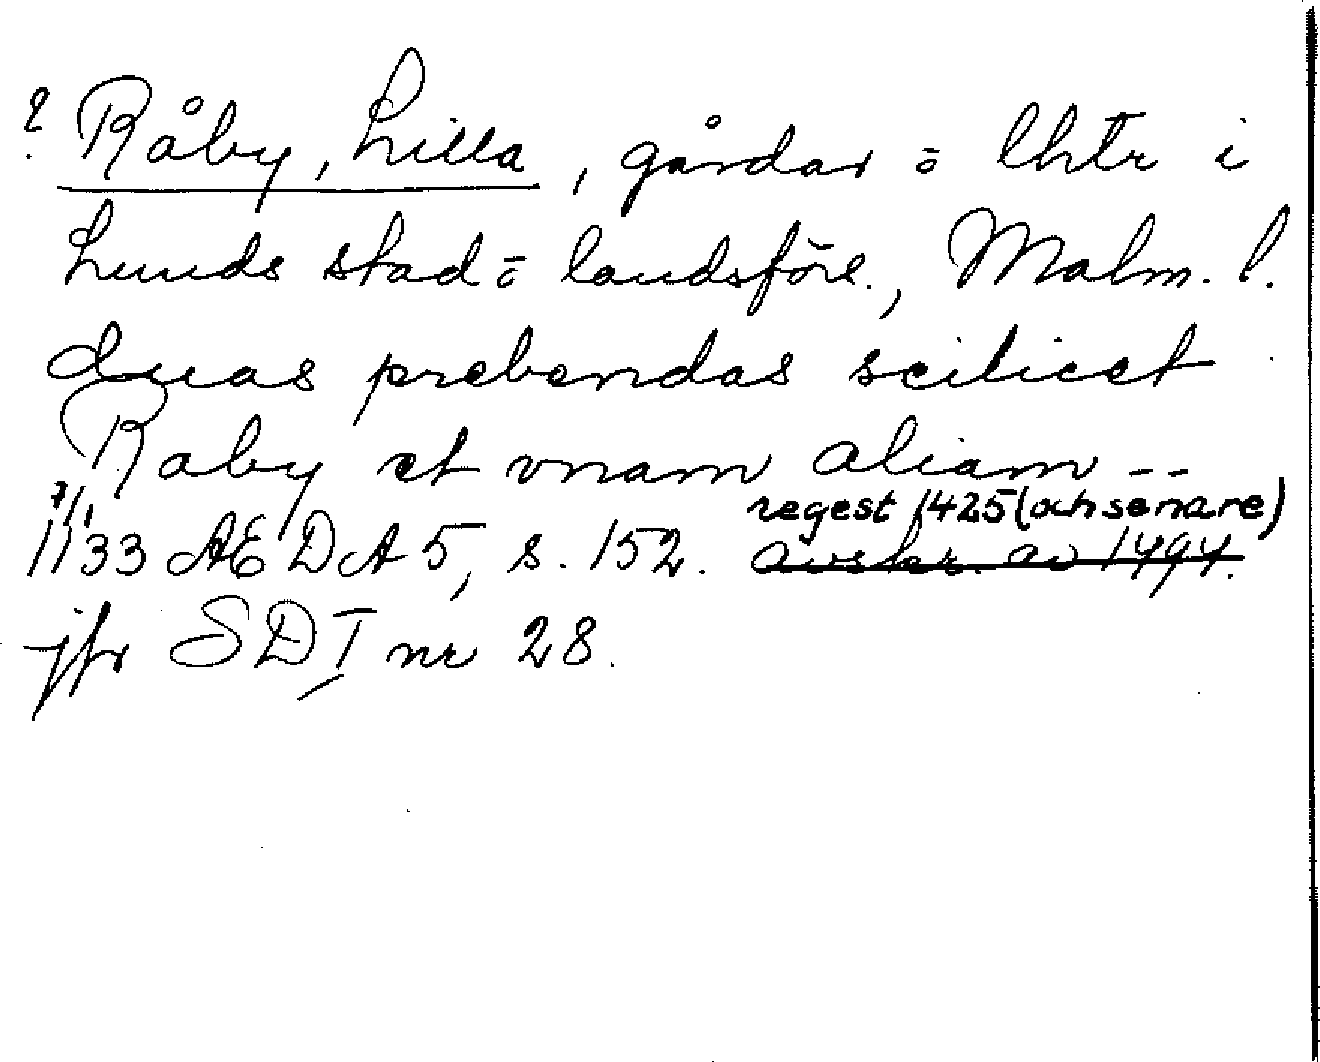 ? Råby, Lilla, gårdar ō lhtr i
Lunds stad ō landsförs., Malm. l.
duas prebendas scilicet
Raby et vnam aliam --
7/1 regest 1425 (och senare)
1133 AEDA 5, s. 152. avskr. av 1494.
jfr SD I nr 28.